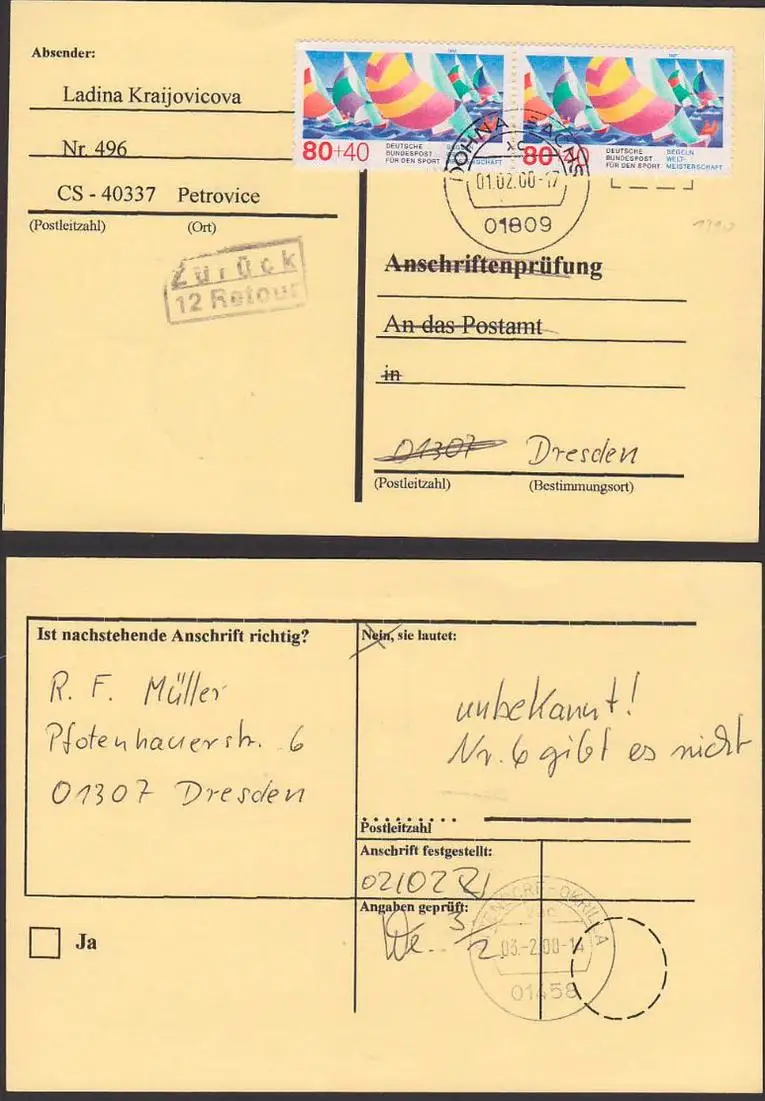 Absender:
Ladina Kraijovicova
Nr. 496
CS - 40337 Petrovice
(Postleitzahl) (Ort)
Zurück
12 Retour
80+40 DEUTSCHE BUNDESPOST FÜR DEN SPORT SEGELN WELT- MEISTERSCHAFT
80+40 DEUTSCHE BUNDESPOST FÜR DEN SPORT SEGELN WELT- MEISTERSCHAFT
DOHNA, SACHS
01.02.00-17
01809
Anschriftenprüfung
An das Postamt
in
01307 Dresden
(Postleitzahl) (Bestimmungsort)
Ist nachstehende Anschrift richtig?
R. F. Müller
Pfotenhauerstr. 6
01307 Dresden
Ja
Nein, sie lautet:
unbekannt!
Nr. 6 gibt es nicht
Postleitzahl
Anschrift festgestellt:
02/02
Angaben geprüft:
3/2
OTTENDORF-OKRILLA
03.-2.00-14
01458